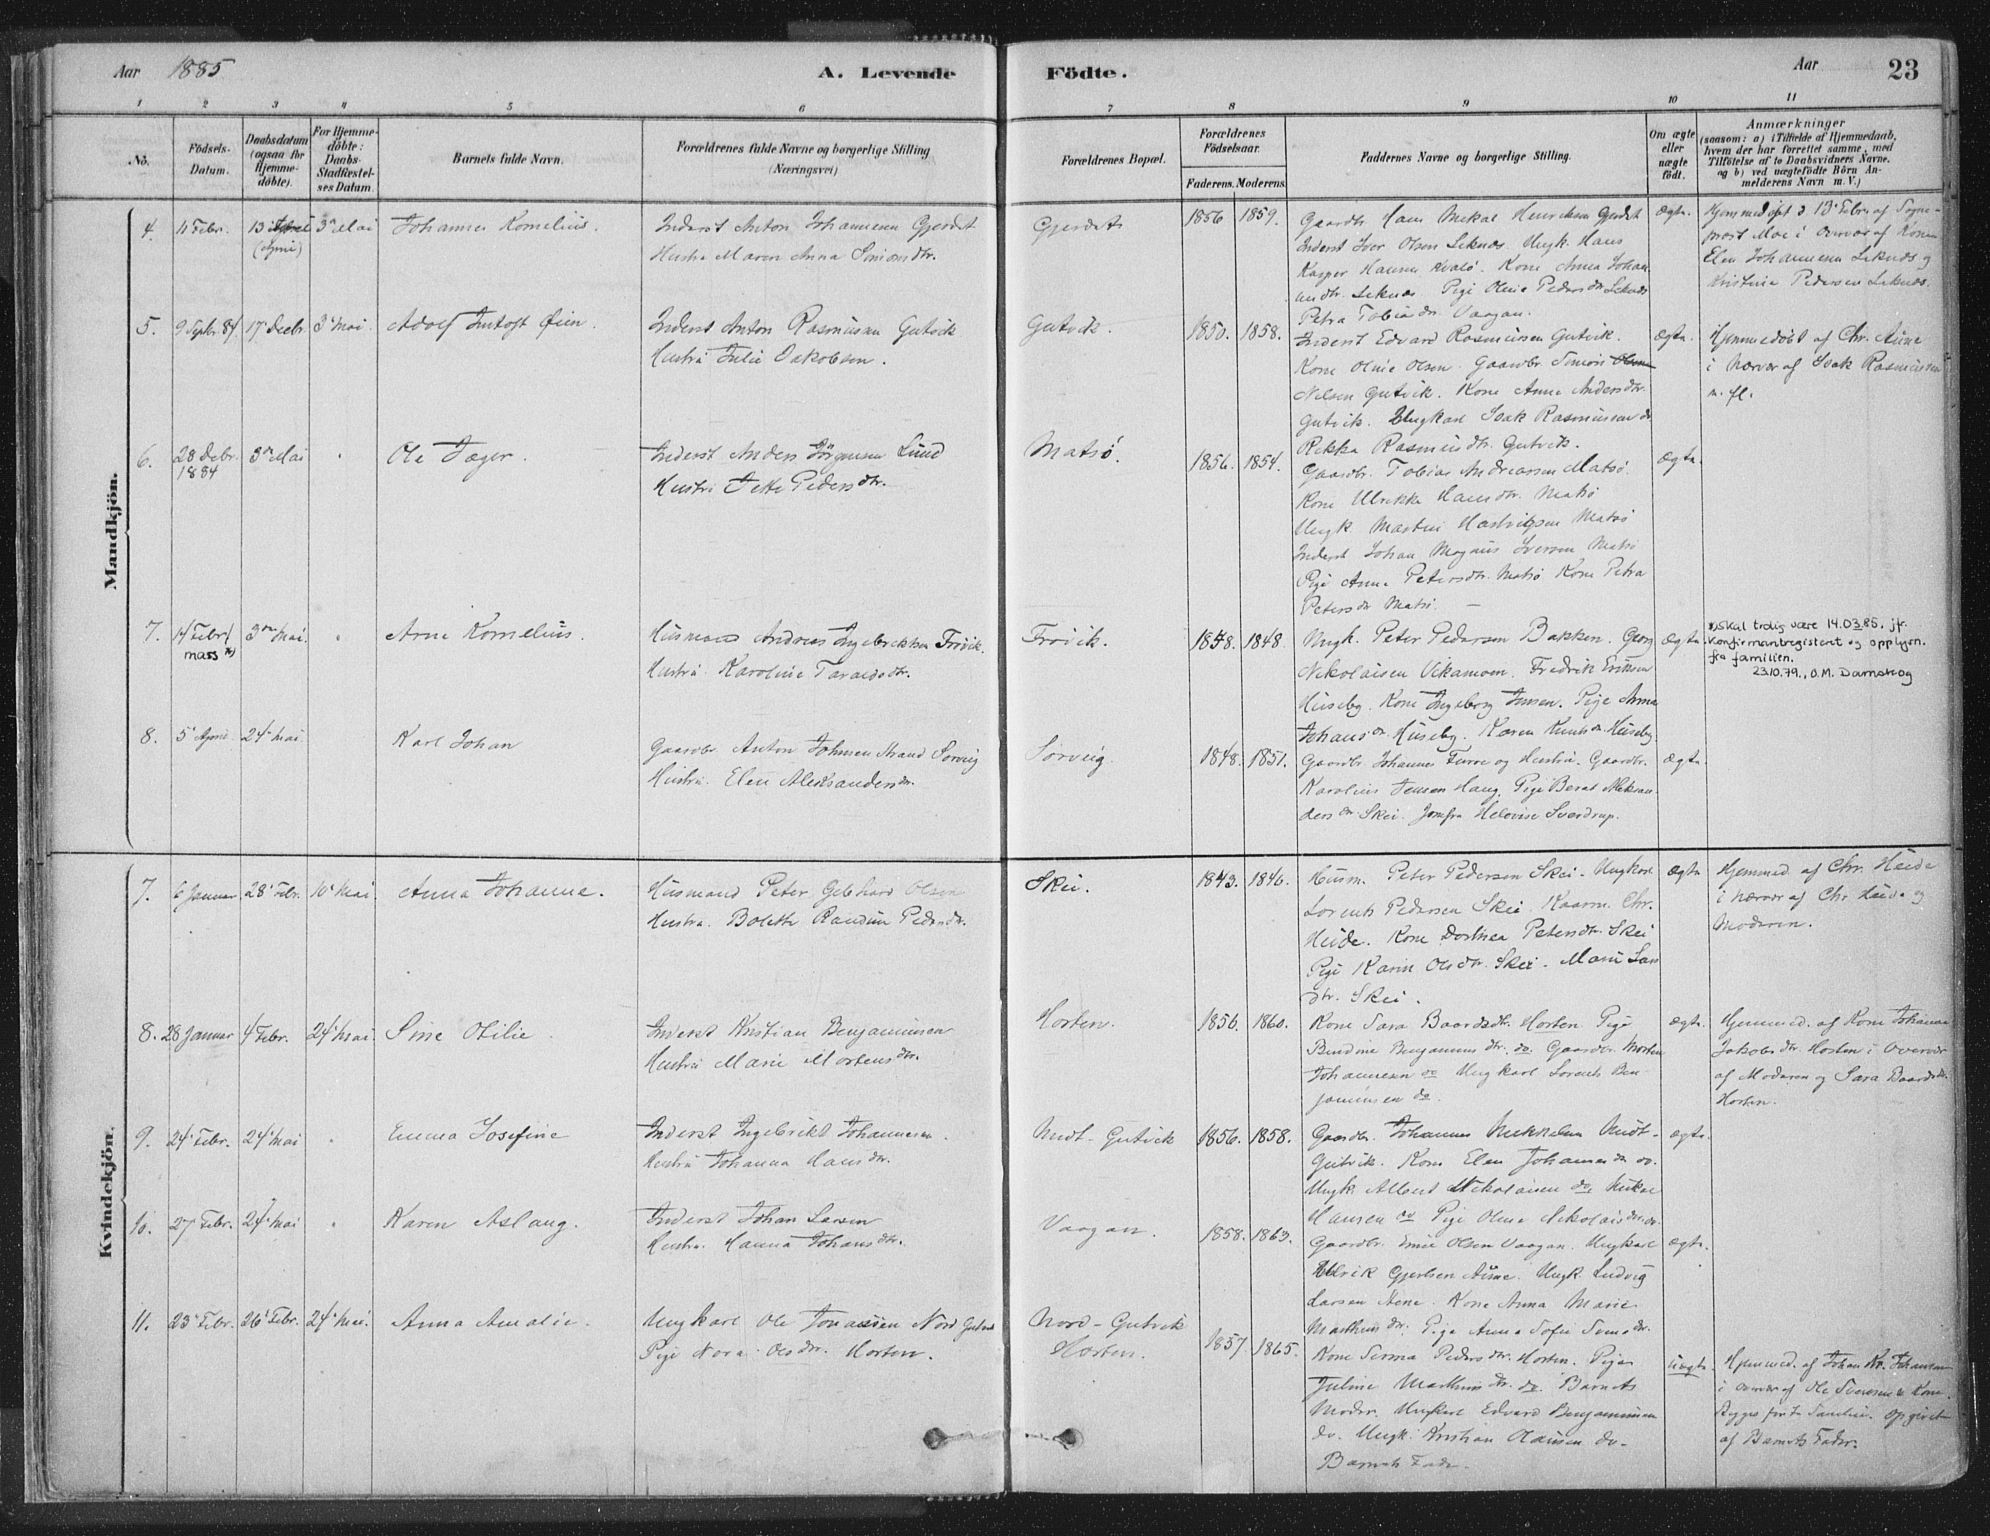 Aar 1885
A. Levende Födte.
Aar
23
1 2 3 4 5 6 7 8 9 10 11
No.
Födsels-
Datum.
Daabsdatum
(ogsaa for
Hjemme-
döbte).
For Hjemme-
döbte:
Daabs-
Stadfæstel-
ses Datum.
Barnets fulde Navn.
Forældrenes fulde Navne og borgerlige Stilling
(Næringsvei)
Forældrenes Bopæl.
Forældrenes
Födselsaar.
Faderens. Moderens.
Faddernes Navne og borgerlige Stilling.
Om ægte
eller
uægte
födt.
Anmærkninger
(saasom: a) i Tilfælde af Hjemmedaab,
hvem der har forrettet samme, med
Tilföielse af to Daabsvidners Navne.
og b) ved uægtefödte Börn An-
melderens Navn m. V.)
Mandkjön.
4. 11 Febr. 13 (April) 3die Mai
Johannes Kornelius.
Inderst Anton Johannesen Gjerdet
Hustru Maren Anna Simonsdtr.
Gjerdet
1856 1859.
Gaardbr. Hans Mikal Henriksen Gjerdet
Inderst Iver Olsen Leknæs. Ungk. Hans
Kasper Hansen Kvalö. Kone Anna Johan
andtr. Leknæs Pige Oline Pedersdtr Leknæs
Petra Tobiasdtr. Vaagan.
ægte.
Hjemmedöbt d 13' Febr. af Sogne-
prest Moe i Overvær af Konen
Elen Johannesen Leknæs og
Kristine Pedersen Leknæs.
5. 9 Septbr. 84. 17' Decbr. 3' Mai.
Adolf Intoft Öien.
Inderst Anton Rasmussen Gutvik
Hustru Julie Jakobsen.
Gutvik.
1850. 1858.
Inderst Edvard Rasmussen Gutvik.
Kone Oline Olsen. Gaardbr. Simon Olsen
Nilsen Gutvik. Kone Anne Andersdtr.
Gutvik. Ungkarl Isak Rasmussen do
Rikka Rasmusdtr. Gutvik.
ægte.
Hjemmedöbt af Chr. Aune
i Nærvær af Isak Rasmussen
m. fl.
6. 28 Debr. 1884 3die Mai "
Ole Jæger.
Inderst Anders Jörgensen Lund
Hustru Jette Pedersdtr.
Matsö.
1856. 1854.
Gaardbr. Tobias Andreassen Matsö
Kone Ulrikke Hansdtr. Matsö
Ungk. Martin Hartvigsen Matsö
Inderst Johan Magnus Iversen Matsö
Pige Anna Petersdtr. Matsö Kone Petra
Petersdtr Matsö. —
ægte
7. 14 Febr/ mars x) 3die Mai. "
Arne Kornelius.
Husmand Andreas Ingebrektsen Frövik.
Hustru Karoline Taraldsdtr.
Frövik.
1848. 1848
Ungk. Peter Pedersen Bakken. Georg
Nikolaisen Vikamoen. Fredrik Eriksen
Huseby. Kone Ingeborg Jensen. Pige Anna
Johansdtr Huseby. Karen Knutsdtr. Huseby.
ægte.
x) skal trolig være 14.03.85, jfr.
konfirmantregisteret og opplysn.
fra familien.
23.10.79., O.M. Damskog
8. 5' April. 24' Mai
Karl Johan
Gaardbr. Anton Johnsen Strand Sörvig
Hustru. Elen Aleksandersdtr.
Sörvig.
1848. 1851.
Gaardbr. Johannes Furre og Hustru. Gaardbr.
Karolius Jensen Haug. Pige Beret Aleksan
dersdtr Skei. Jomfru Helovise Sverdrup.
ægte.
Kvindekjön.
7. 6 Januar 28' Febr. 10' Mai.
Anna Johanne.
Husmand Peter Gebhard Olsen
Hustru. Bolette Randine Pedersdtr.
Skei.
1843. 1846.
Husm. Peter Pedersen Skei. Ungkarl
Lorents Pedersen Skei. Kaarm. Chr.
Heide. Kone Dorthea Petersdtr. Skei
Pige Karin Olsdtr. Skei. Marie Lars
dtr. Skei.
ægte
Hjemmed. af Chr. Heide
i Nærvær af Chr. Heide og
Moderen.
8. 28 Januar 4 Febr. 24' Mai.
Sine Otilie.
Inderst Kristian Benjaminsen
Hustru Marie Mortensdtr.
Horten.
1856. 1860.
Kone Sara Baardsdtr. Horten. Pige
Berdine Benjaminsdtr. do. Gaardbr. Morten
Johannesen do Ungkarl Lorents Ben
jaminsen do.
ægte.
Hjemmed. af Kone Johanna
Jakobsdtr. Horten i Overvær
af Moderen og Sara Baardsdtr.
Horten.
9. 24' Febr. 24' Mai "
Emma Josefine
Inderst Ingebrikt Johannesen
Hustru Johanna Hansdtr.
Midt-Gutvik
1856. 1858.
Gaardbr. Johannes Mikkelsen Midt-
Gutvik. Kone Elen Johannesdtr do.
Ungk. Albert Nikolaisen do. Mikal
Hansen do Pige Oline Nikolaisdtr do.
ægte.
10. 27 Febr. 24' Mai "
Karen Aslaug.
Inderst Johan Larsen
Hustru. Hanna Johansdtr.
Vaagan.
1858. 1863.
Gaardbr. Emil Olsen Vaagan. Ungkarl
Ulrik Gjertsen Aune. Ungk. Ludvig
Larsen Aune. Kone Anna Marie
Mathiasdtr. Pige Anna Sofie Svensdtr.
ægte.
11. 23' Febr. 26' Febr. 24' Mai.
Anna Amalie.
Ungkarl Ole Jonassen Nord Gutvik
Pige Nora Olsdtr. Horten.
Nord-Gutvik
Horten.
1857. 1865.
Kone Serena Pedersdtr. Horten. Pige
Juline Mathiasdtr. do. Barnets
Moder. Ungkarl Edvard Benjaminsen
do. Ungk. Kristian Olausen do.
Barnets Fader.
uægte.
Hjemmed. af Johan Kr. Johansen
i Overvær af Ole Sverresen & Kone.
af Barnets Fader.